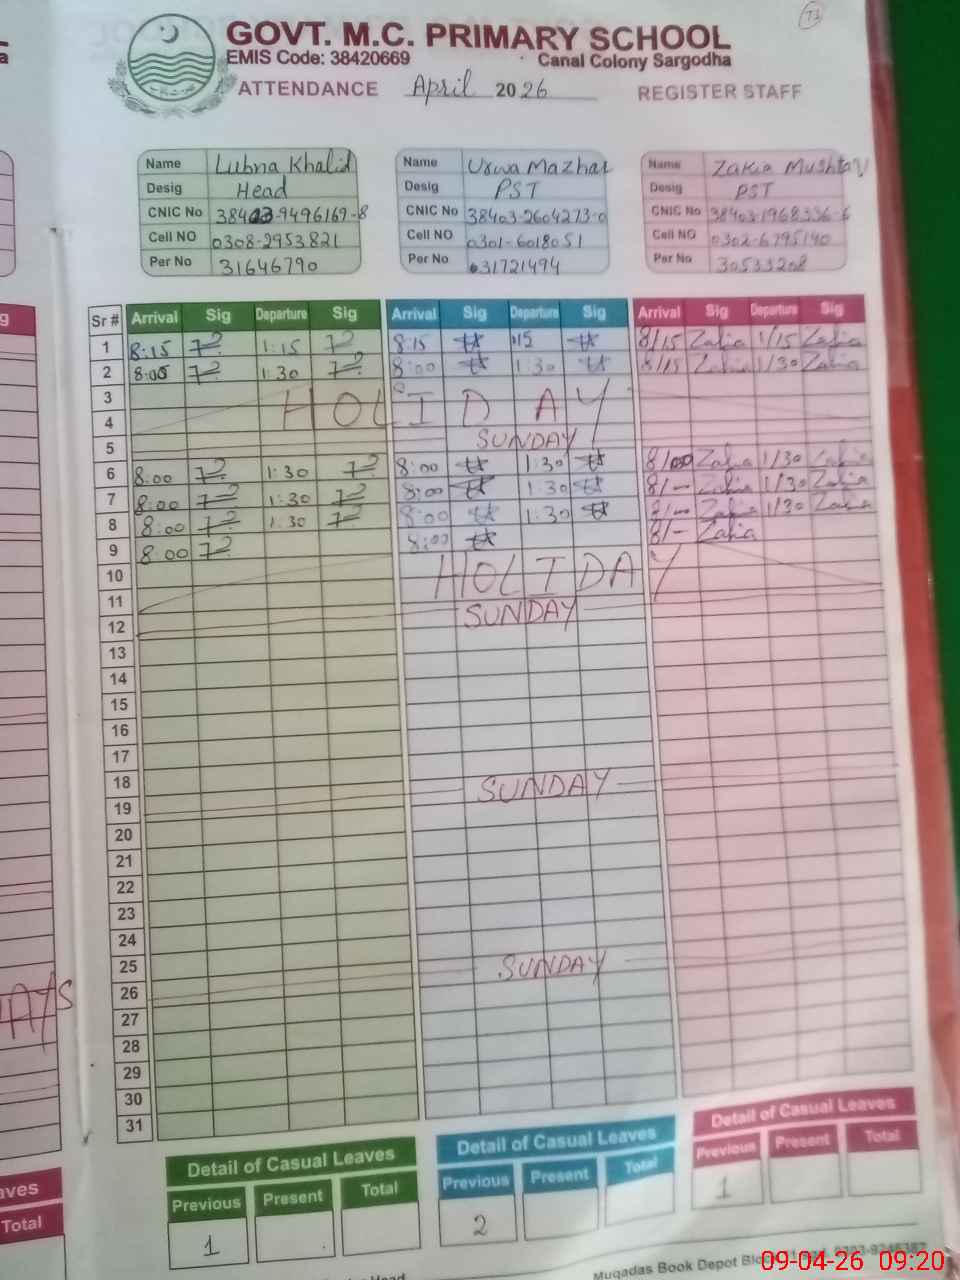 T1
GOVT. M.C. PRIMARY SCHOOL
EMIS Code: 38420669 Canal Colony Sargodha
ATTENDANCE April 2026 REGISTER STAFF
Name Lubna Khalid Name Urwa Mazhar Name Zakia Mushtaq
Desig Head Desig PST Desig PST
CNIC No 38403-9496169-8 CNIC No 38403-2604273-0 CNIC No 38403-1968336-6
Cell NO 0308-2953821 Cell NO 0301-6018051 Cell NO 0302-6795140
Per No 31646790 Per No 31721494 Per No 30533208
Sr # Arrival Sig Departure Sig Arrival Sig Departure Sig Arrival Sig Departure Sig
1 8:15 1:15 8:15 :15 8/15 Zakia 1/15 Zakia
2 8:00 1:30 8:00 1:30 8/15 Zakia 1/30 Zakia
3
4 HOLIDAY
5 SUNDAY
6 8:00 1:30 8:00 1:30 8/00 Zakia 1/30 Zakia
7 8:00 1:30 8:00 1:30 8/- Zakia 1/30 Zakia
8 8:00 1:30 8:00 1:30 8/00 Zakia 1/30 Zakia
9 8:00 8:00 8/- Zakia
10 HOLIDAY
11
12 SUNDAY
13
14
15
16
17
18
19 SUNDAY
20
21
22
23
24
25
26 SUNDAY
27
28
29
30
31
Detail of Casual Leaves Detail of Casual Leaves Detail of Casual Leaves
Previous Present Total Previous Present Total Previous Present Total
1 2 1
aves
Total
Muqadas Book Depot Block
09-04-26 09:20